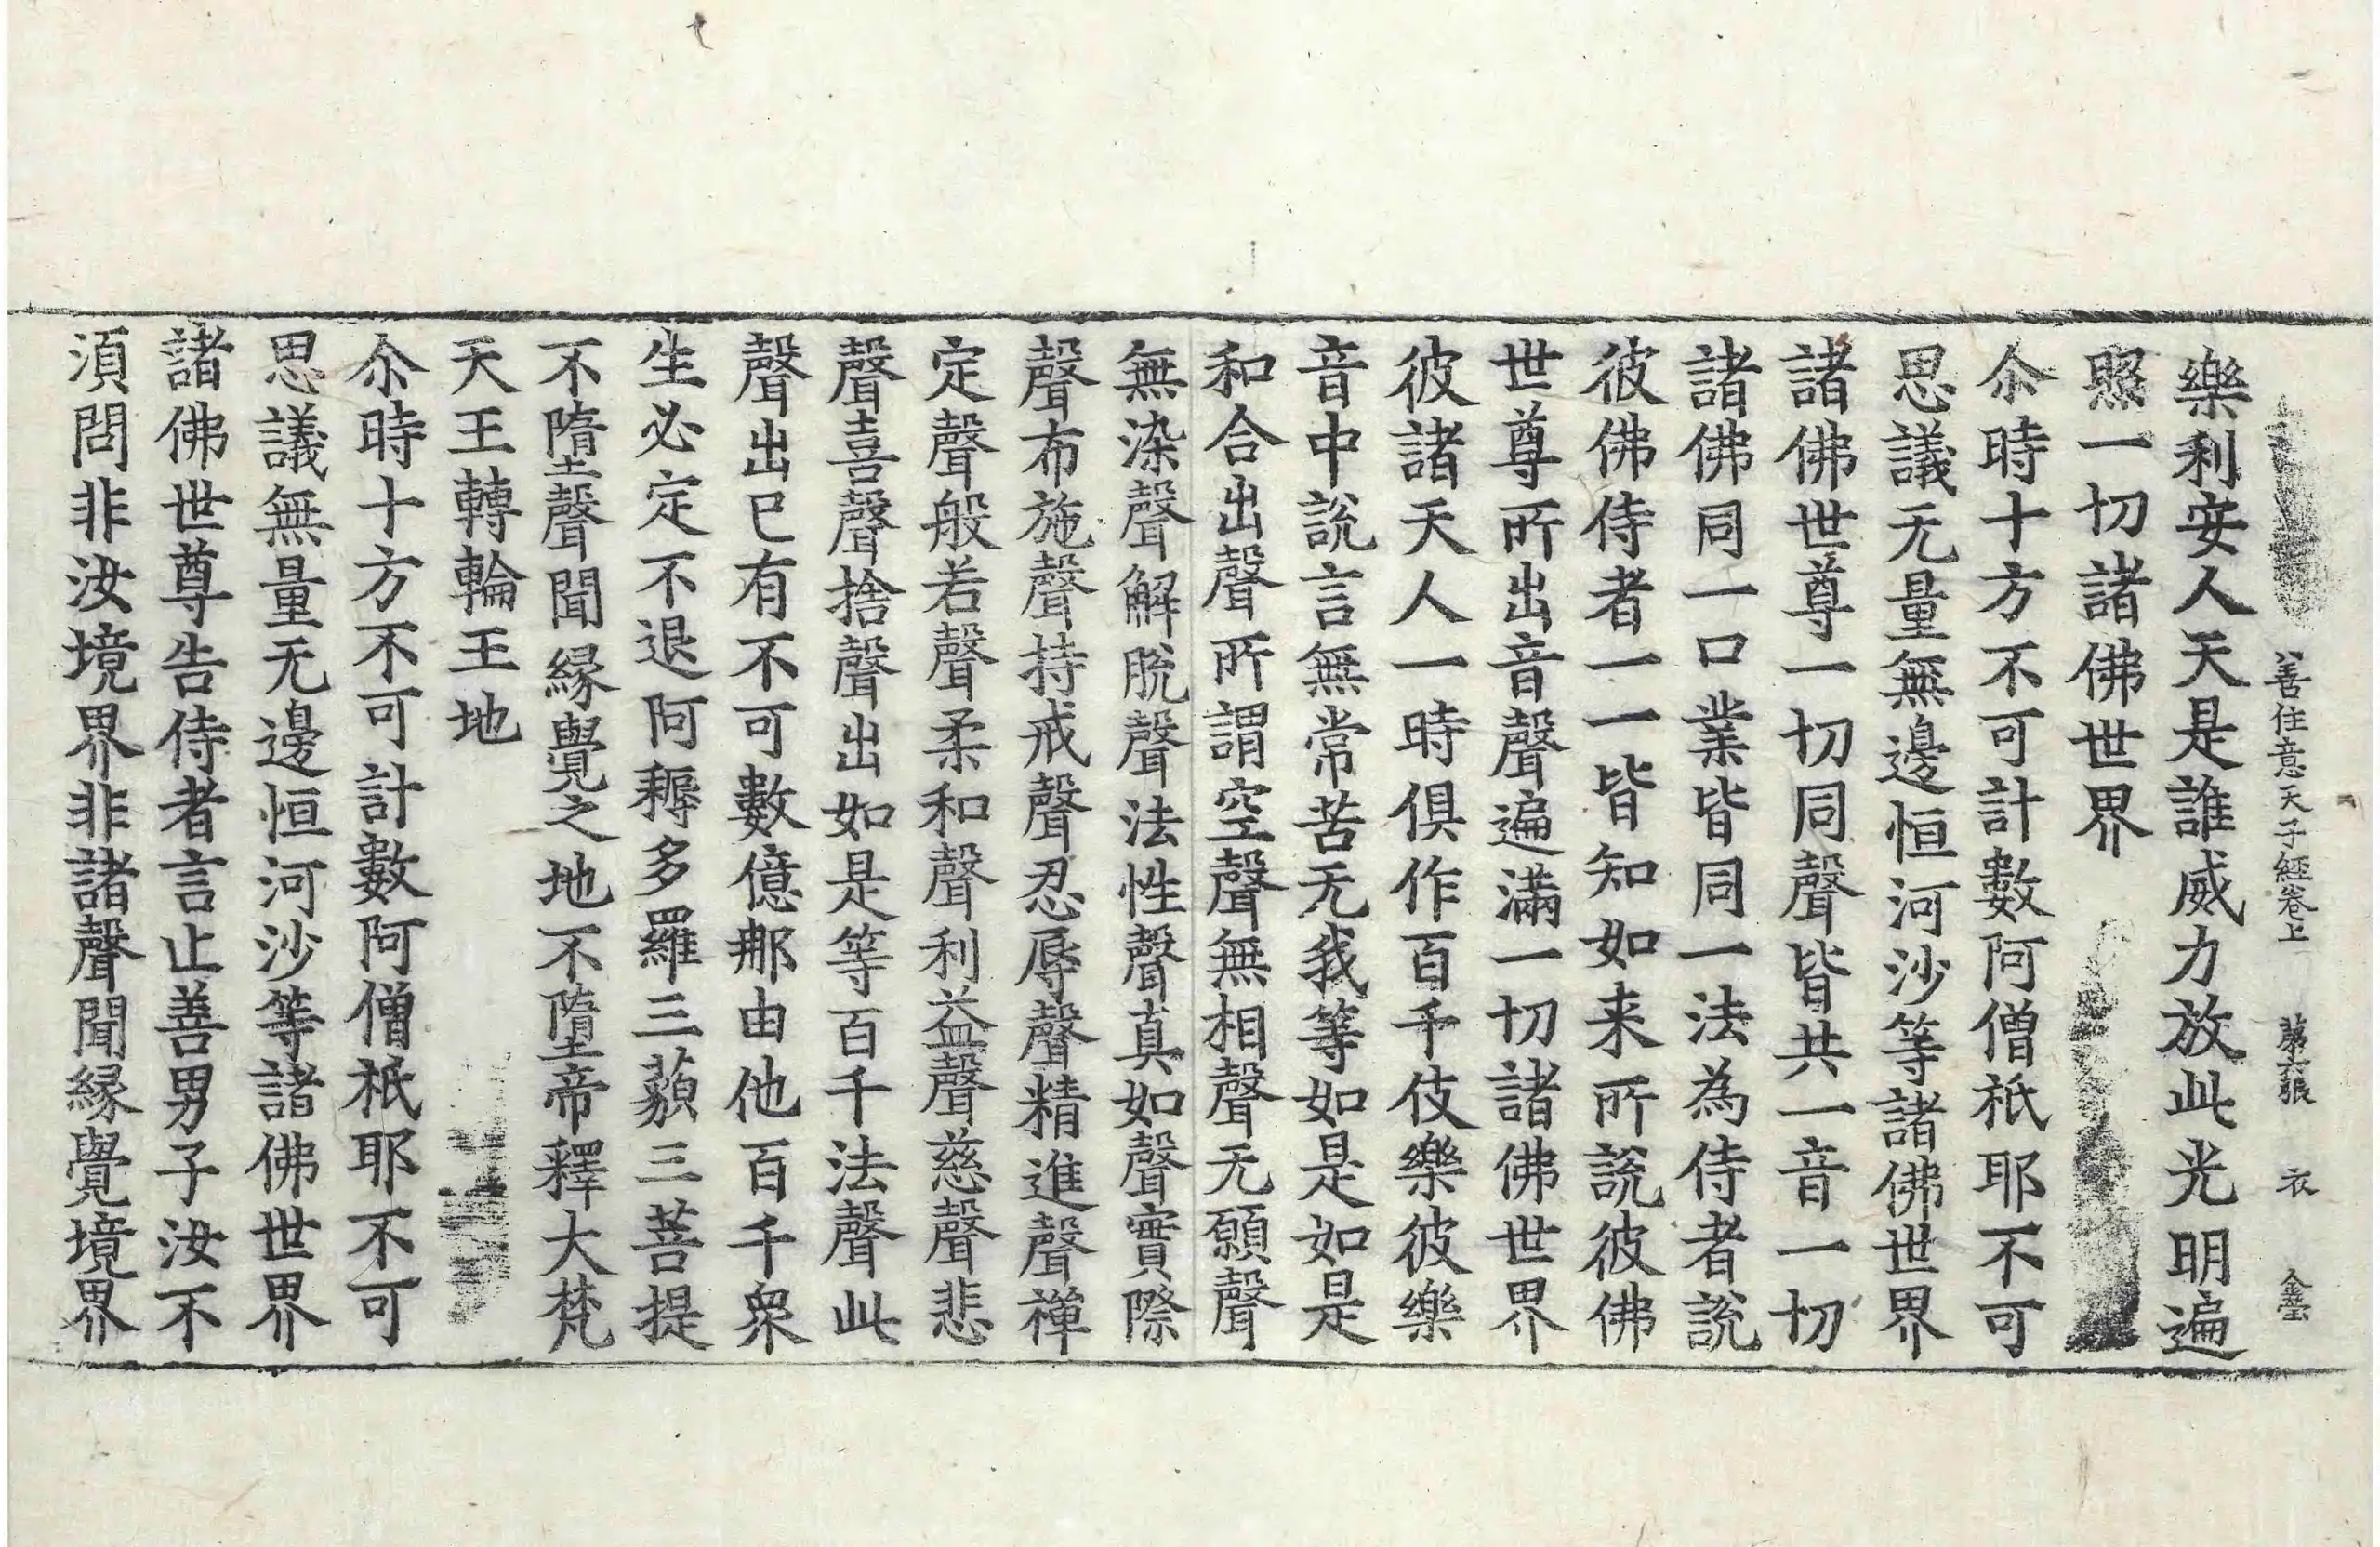 善住意天子經卷上 第六張 衣
樂利安人天是誰威力放此光明遍
照一切諸佛世界
尒時十方不可計數阿僧祇耶不可
思議无量無邊恒河沙等諸佛世界
諸佛世尊一切同聲皆共一音一切
諸佛同一口業皆同一法為侍者說
彼佛侍者一一皆知如来所說彼佛
世尊所出音聲遍滿一切諸佛世界
彼諸天人一時俱作百千伎樂彼樂
音中說言無常苦无我等如是如是
和合出聲所謂空聲無相聲无願聲
無染聲解脫聲法性聲真如聲實際
聲布施聲持戒聲忍辱聲精進聲禪
定聲般若聲柔和聲利益聲慈聲悲
聲喜聲捨聲出如是等百千法聲此
聲出已有不可數億那由他百千衆
生必定不退阿耨多羅三藐三菩提
不墮聲聞緣覺之地不墮帝釋大梵
天王轉輪王地
尒時十方不可計數阿僧祇耶不可
思議無量无邊恒河沙等諸佛世界
諸佛世尊告侍者言止善男子汝不
須問非汝境界非諸聲聞緣覺境界